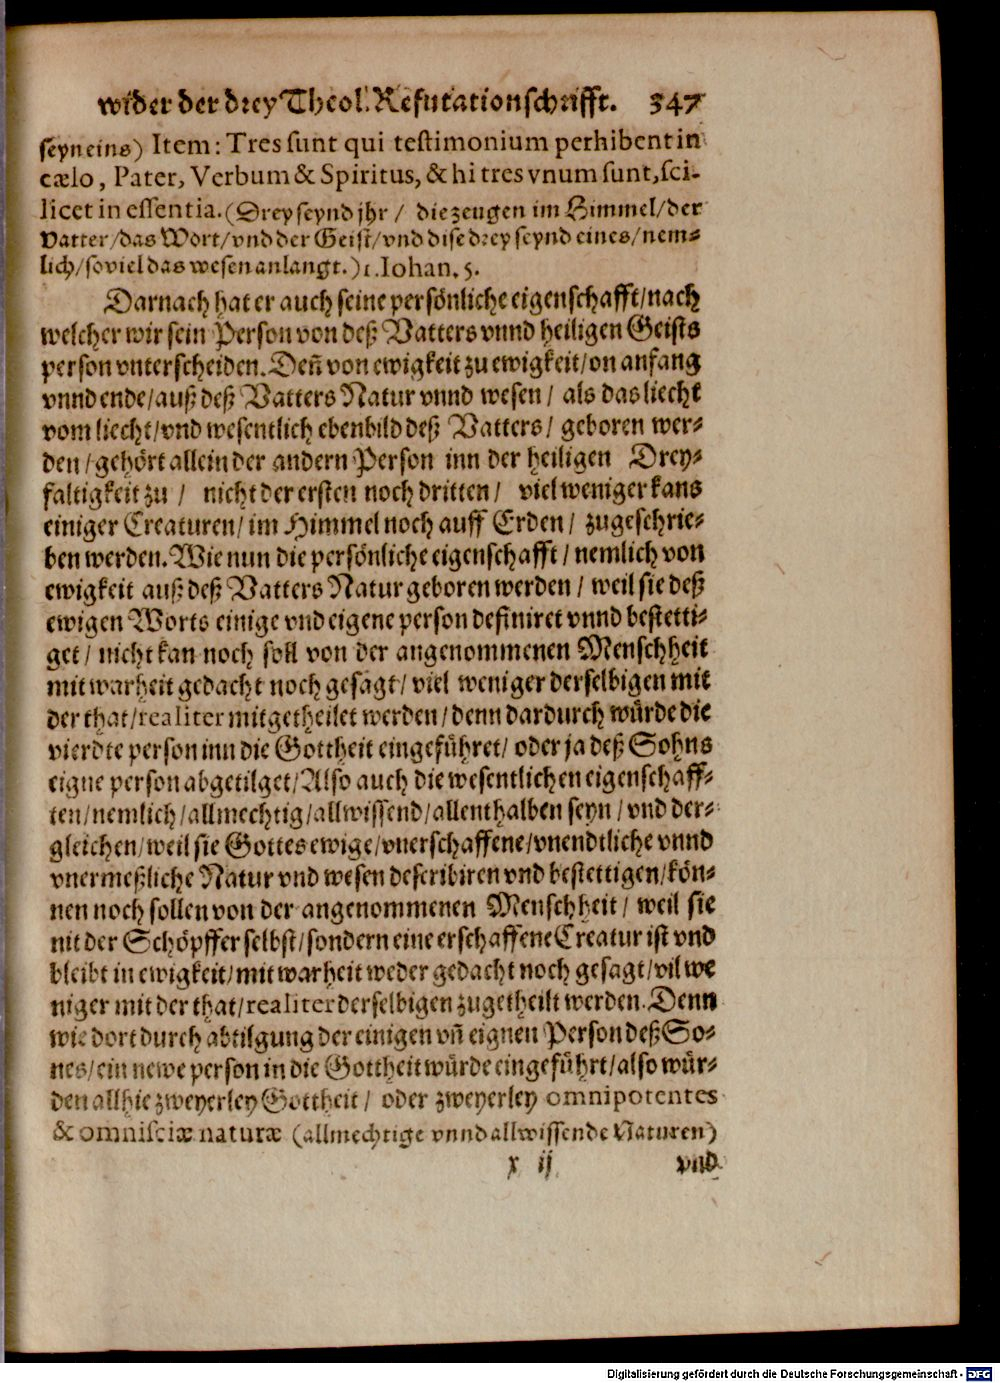 wider der drey Theol. Refutationschrifft. 347
seyn eins) Item: Tres sunt qui testimonium perhibent in
cælo, Pater, Verbum & Spiritus, & hi tres vnum sunt, sci-
licet in essentia. (Drey seynd jhr / die zeugen im Himmel / der
Vatter / das Wort / vnd der Geist / vnd dise drey seynd eines / nem-
lich / so viel das wesen anlangt.) 1. Iohan. 5.
Darnach hat er auch seine persönliche eigenschafft / nach
welcher wir sein Person von deß Vatters vnnd heiligen Geists
person vnterscheiden. Deñ von ewigkeit zu ewigkeit / on anfang
vnnd ende / auß deß Vatters Natur vnnd wesen / als das liecht
vom liecht / vnd wesentlich ebenbild deß Vatters / geboren wer-
den / gehört allein der andern Person inn der heiligen Drey-
faltigkeit zu / nicht der ersten noch dritten / viel weniger kans
einiger Creaturen / im Himmel noch auff Erden / zugeschrie-
ben werden. Wie nun die persönliche eigenschafft / nemlich von
ewigkeit auß deß Vatters Natur geboren werden / weil sie deß
ewigen Worts einige vnd eigene person definiret vnnd bestetti-
get / nicht kan noch soll von der angenommenen Menschheit
mit warheit gedacht noch gesagt / viel weniger derselbigen mit
der that / realiter mitgetheilet werden / denn dardurch würde die
vierdte person inn die Gottheit eingeführet / oder ja deß Sohns
eigne person abgetilget / Also auch die wesentlichen eigenschaff-
ten / nemlich / allmechtig / allwissend / allenthalben seyn / vnd der-
gleichen / weil sie Gottes ewige / vnerschaffene / vnendtliche vnnd
vnermeßliche Natur vnd wesen describiren vnd bestettigen / kön-
nen noch sollen von der angenommenen Menschheit / weil sie
nit der Schöpffer selbst / sondern eine erschaffene Creatur ist vnd
bleibt in ewigkeit / mit warheit weder gedacht noch gesagt / vil we
niger mit der that / realiter derselbigen zugetheilt werden. Denn
wie dort durch abtilgung der einigen vñ eignen Person deß So-
nes / ein newe person in die Gottheit würde eingeführt / also wür-
den allhie zweyerley Gottheit / oder zweyerley omnipotentes
& omnisciæ naturæ (allmechtige vnnd allwissende Naturen)
x ij vnd
Digitalisierung gefördert durch die Deutsche Forschungsgemeinschaft - DFG